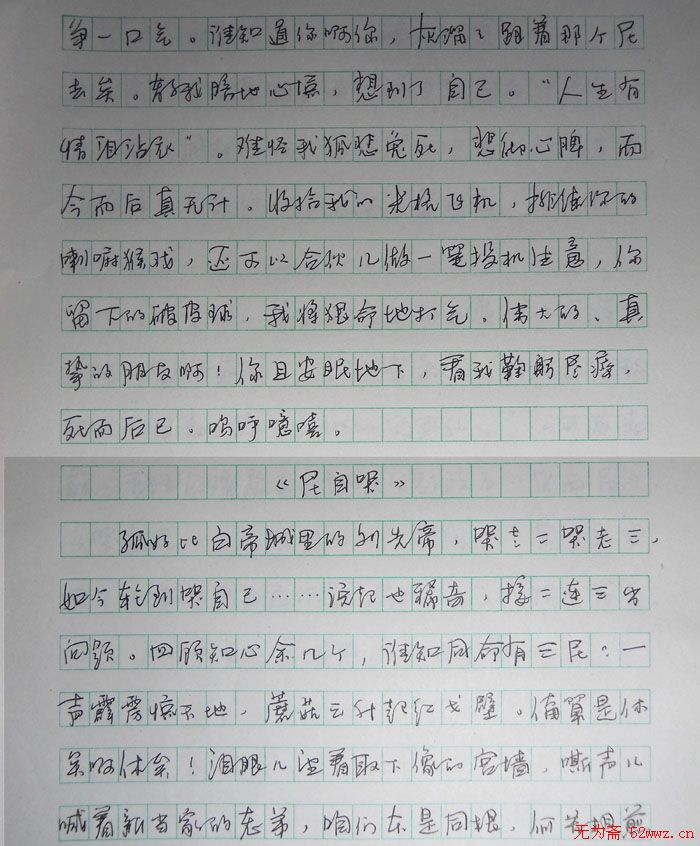 争一口气。谁知道你啊你，灰溜溜跟着那个尼
去矣。教我暗地心惊，想到了自己。“人生有
情泪沾衣”。难怪我狐悲兔死，悲伤心脾，而
今而后真无计。收拾我的光棍飞机，排练你的
喇嘛猴戏，还可以合伙儿做一笔投机生意，你
留下的破皮球，我将狠命地打气。伟大的、真
挚的朋友啊！你且安眠地下，看我鞠躬尽瘁，
死而后已。呜呼噫嘻。
《尼自哭》
孤好比白帝城里的刘先帝，哭老二哭老三，
如今轮到哭自己……说起也稀奇，接二连三出
问题。四顾知心余几个，谁知同命有三尼？一
声霹雳惊天地，蘑菇云升起红戈壁。俺算是休
矣啊休矣！泪眼儿望着取下像的宫墙，嘶声儿
喊着新当家的老弟，咱们本是同根，何太相煎
无为斋.52wwz.cn